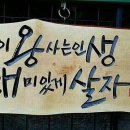 이왕 사는 인생
재미있게 살자